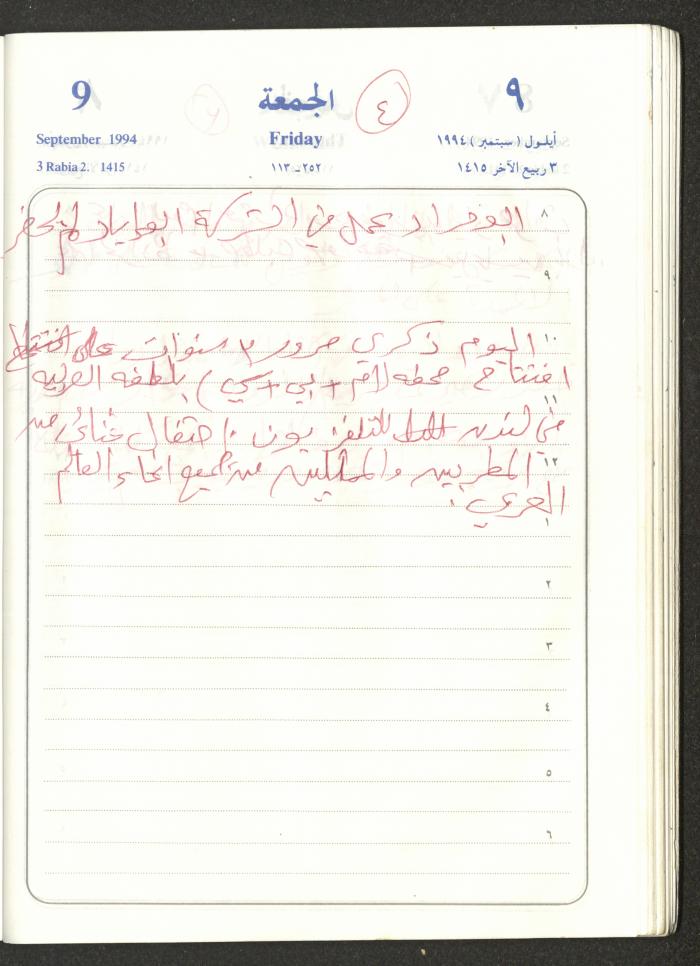 9 الجمعة ٤ ٩
September 1994 Friday أيلول (سبتمبر) ١٩٩٤
3 Rabia 2. 1415 ١١٣-٢٥٢ ٣ ربيع الآخر ١٤١٥
٨ ابو مراد يعمل في الشركة
٩
١٠ اليوم ذكرى مرور ٣ سنوات على
افتتاح محطه (ام + بي + سي) بلطغه العربيه
١١
في لندن للتلفزيون احتفال غنائي من
١٢ المطربين والممثلين من جميع انحاء العالم
العربي.
١
٢
٣
٤
٥
٦